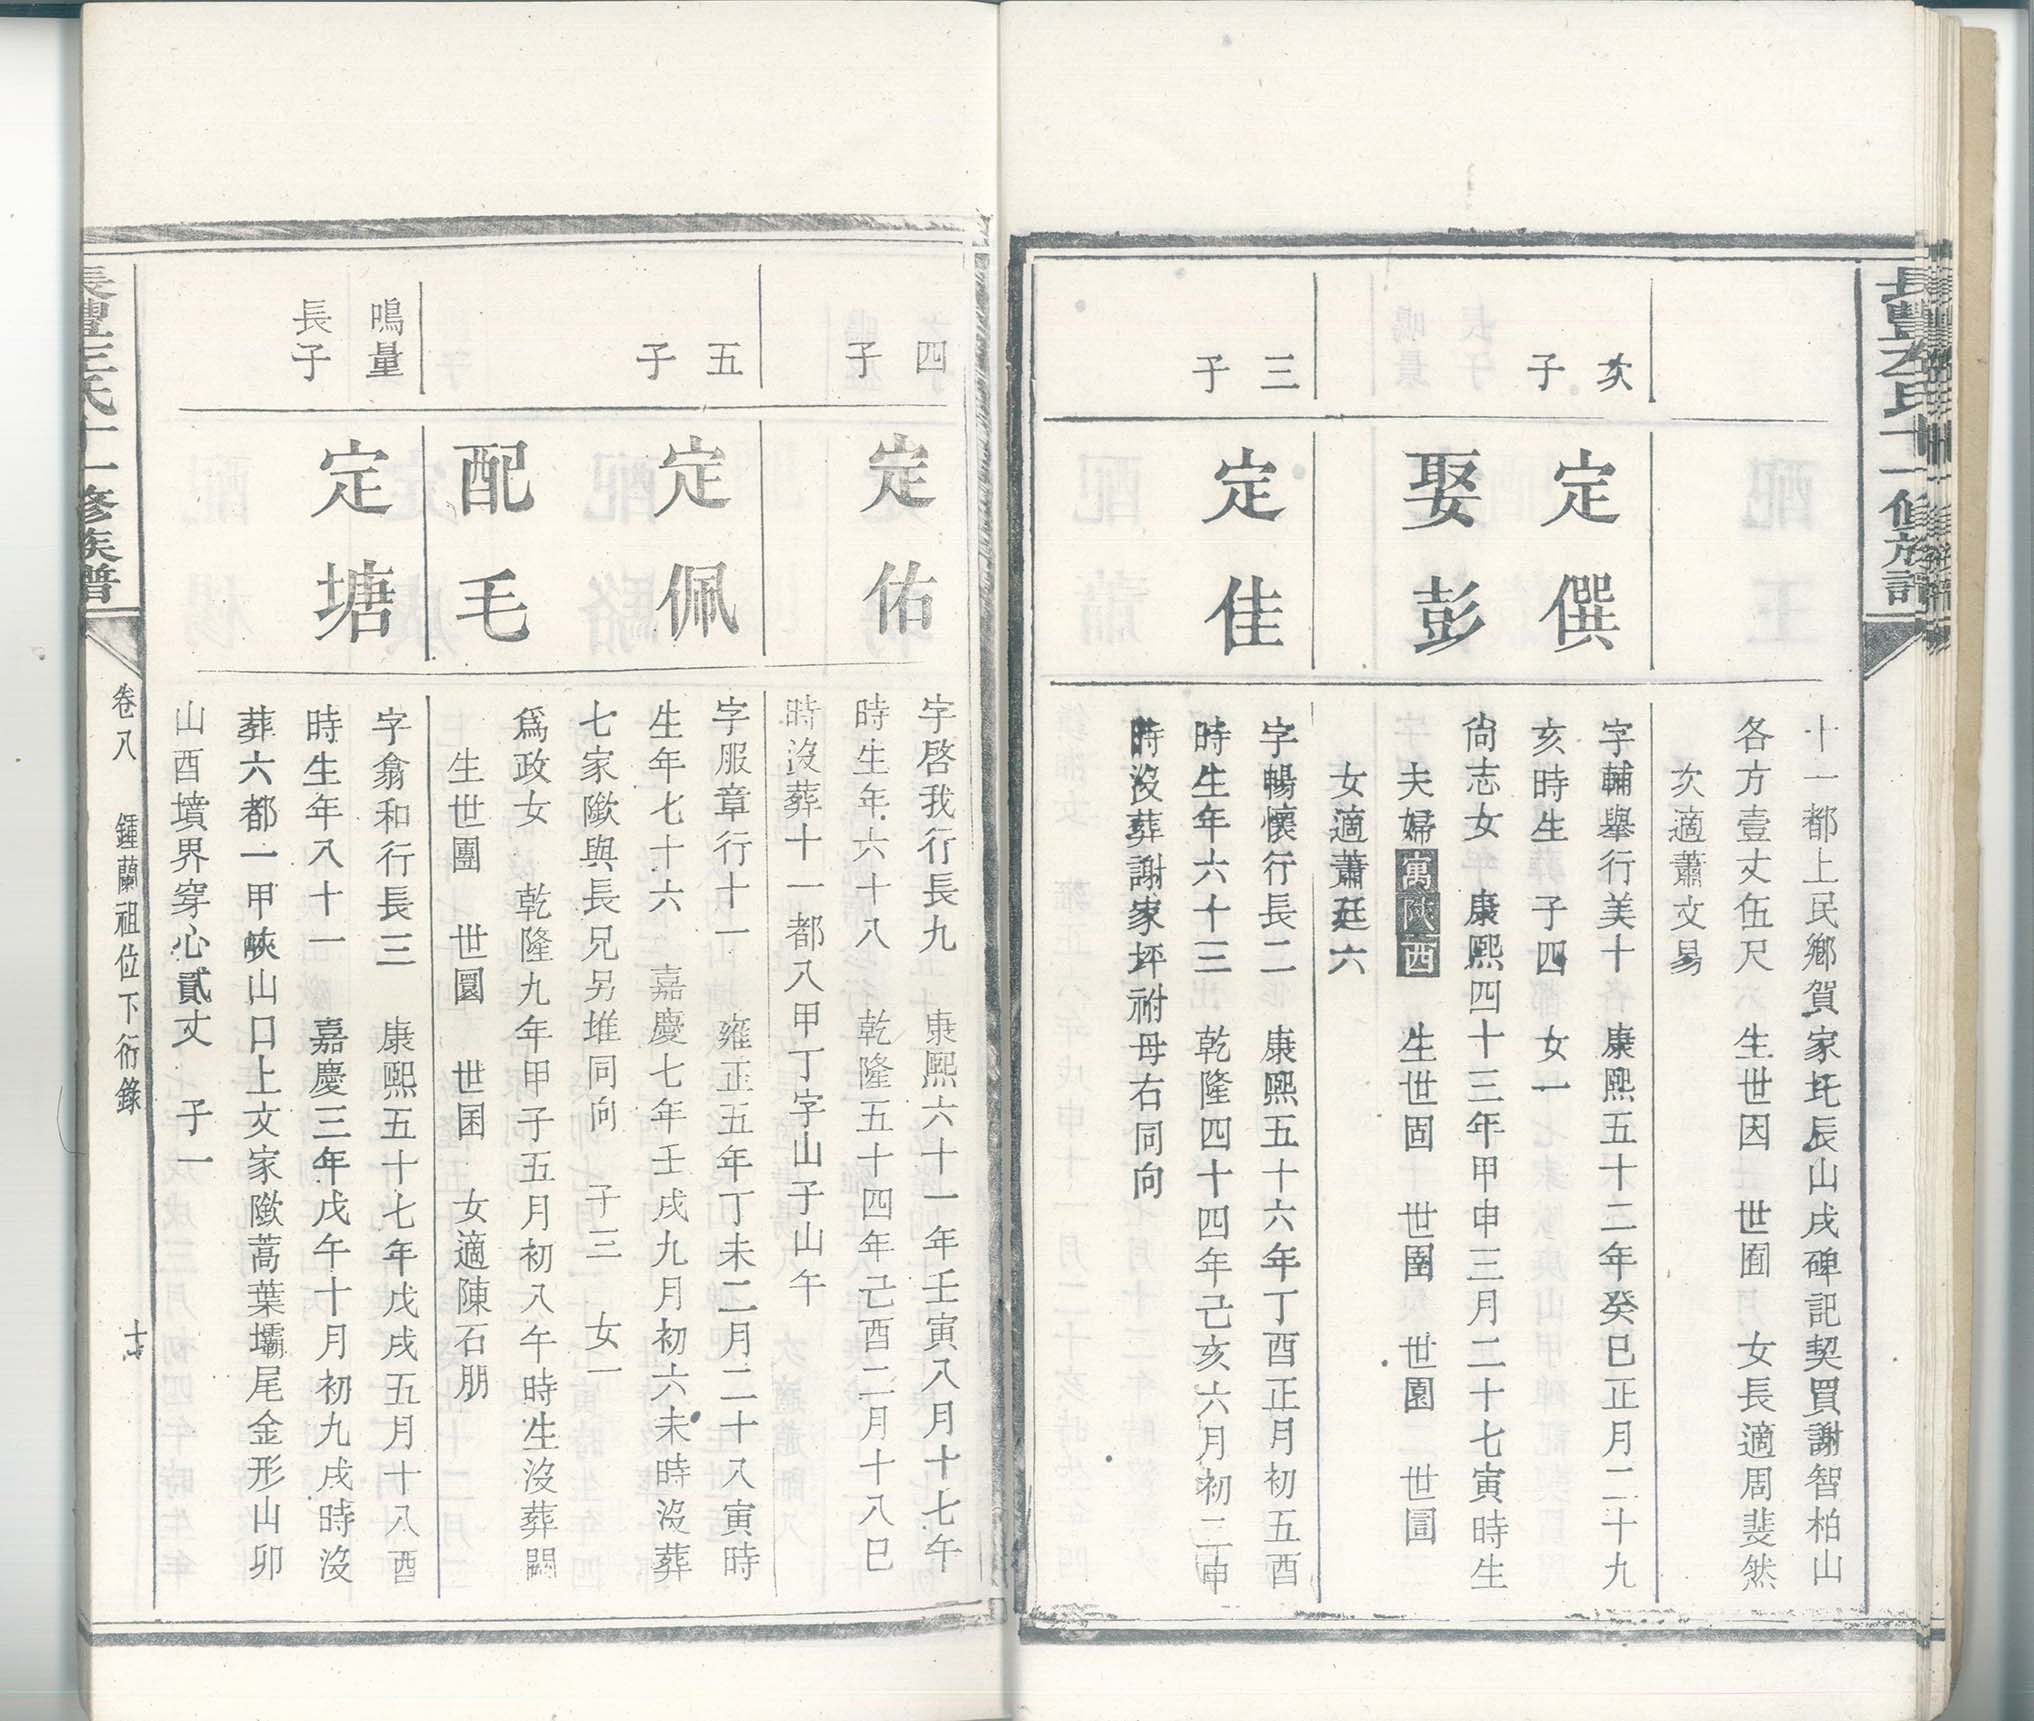 十一都上民鄉賀家圫辰山戌碑記契買謝智柏山
各方壹丈伍尺 生世因 世囿 女長適周斐然
次適蕭文易
次子
定僎
字輔舉行美十 康熙五十二年癸巳正月二十九
亥時生 子四 女一
娶彭
尙志女 康熙四十三年甲申三月二十七寅時生
夫婦寓陝西 生世固 世圉 世園 世圁
女適蕭廷六
三子
定佳
字暢懷行長二 康熙五十六年丁酉正月初五酉
時生年六十三 乾隆四十四年己亥六月初二申
時沒葬謝家坪祔母右同向
四子
定佑
字啓我行長九 康熙六十一年壬寅八月十七午
時生年六十八 乾隆五十四年己酉二月十八巳
時沒葬十一都八甲丁字山子山午
五子
定佩
字服章行十一 雍正五年丁未二月二十八寅時
生年七十六 嘉慶七年壬戌九月初六未時沒葬
七家隞與長兄另堆同向 子三 女一
配毛
爲政女 乾隆九年甲子五月初八午時生沒葬闕
生世團 世圜 世囷 女適陳石朋
鳴量長子
定塘
字翕和行長三 康熙五十七年戊戌五月十八酉
時生年八十一 嘉慶三年戊午十月初九戌時沒
葬六都一甲峽山口上文家隞蒿葉壩尾金形山卯
山酉墳界穿心貳丈 子一
卷八 鍾蘭祖位下衍錄